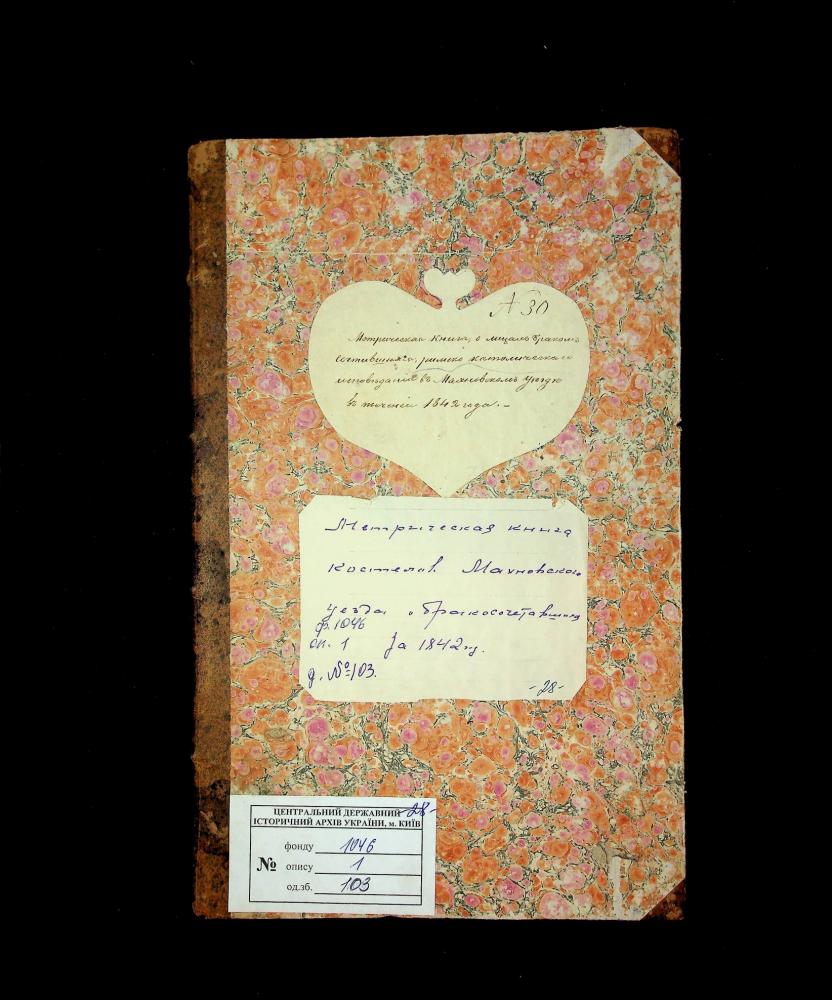 N 30
Метрическая книга, о лицахъ бракомъ
сочетавшихся, римско католическаго
исповѣданія въ Махновскомъ уѣздѣ
въ теченіи 1842 года. –
Метрическая книга
костелов Махновского
уезда о бракосочетавшихся
ф. 1046
оп. 1 За 1842 г.
д. № 103.
-28-
-28-
ЦЕНТРАЛЬНИЙ ДЕРЖАВНИЙ
ІСТОРИЧНИЙ АРХІВ УКРАЇНИ, м. КИЇВ
фонду 1046
№ опису 1
од.зб. 103